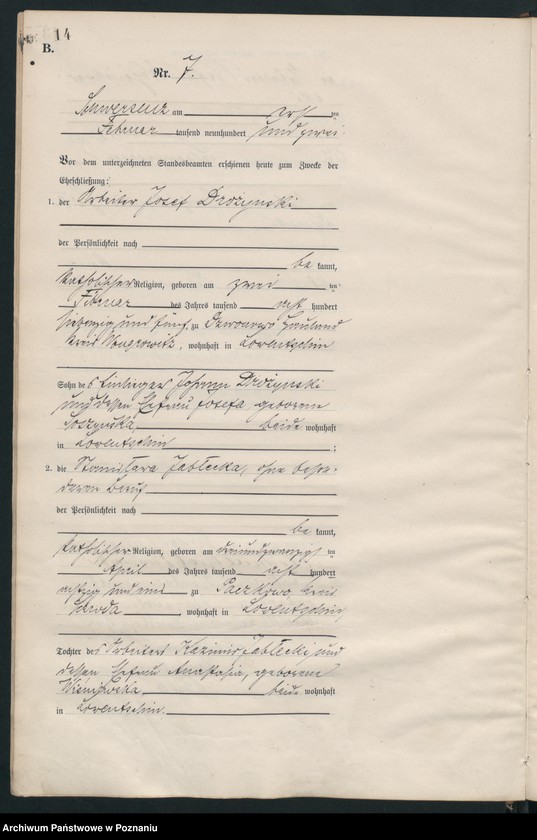 14
B.
Nr. 7.
Schwersenz am ersten
Februar tausend neunhundert und zwei.
Vor dem unterzeichneten Standesbeamten erschienen heute zum Zwecke der
Eheschließung:
1. der Arbeiter Josef Drozynski
der Persönlichkeit nach
bekannt,
katholischer Religion, geboren am zweiten
Februar des Jahres tausend acht hundert
siebenzig und fünf, zu Hauland
Kreis, wohnhaft in Lowentschin
Sohn des Einliegers Johann Drożynski
und dessen Ehefrau Josefa, geborene
beide wohnhaft
in Lowentschin;
2. die Stanisława Jabłecka, ohne beson-
deren Beruf
der Persönlichkeit nach
bekannt,
katholischer Religion, geboren am dreiundzwanzigsten
April des Jahres tausend acht hundert
achtzig und eins zu Paczkowo Kreis
Schroda, wohnhaft in Lowentschin,
Tochter des Arbeiters Kazimir Jabłecki, und
dessen Ehefrau Anastasia, geborene
beide wohnhaft
in Lowentschin.
Archiwum Państwowe w Poznaniu